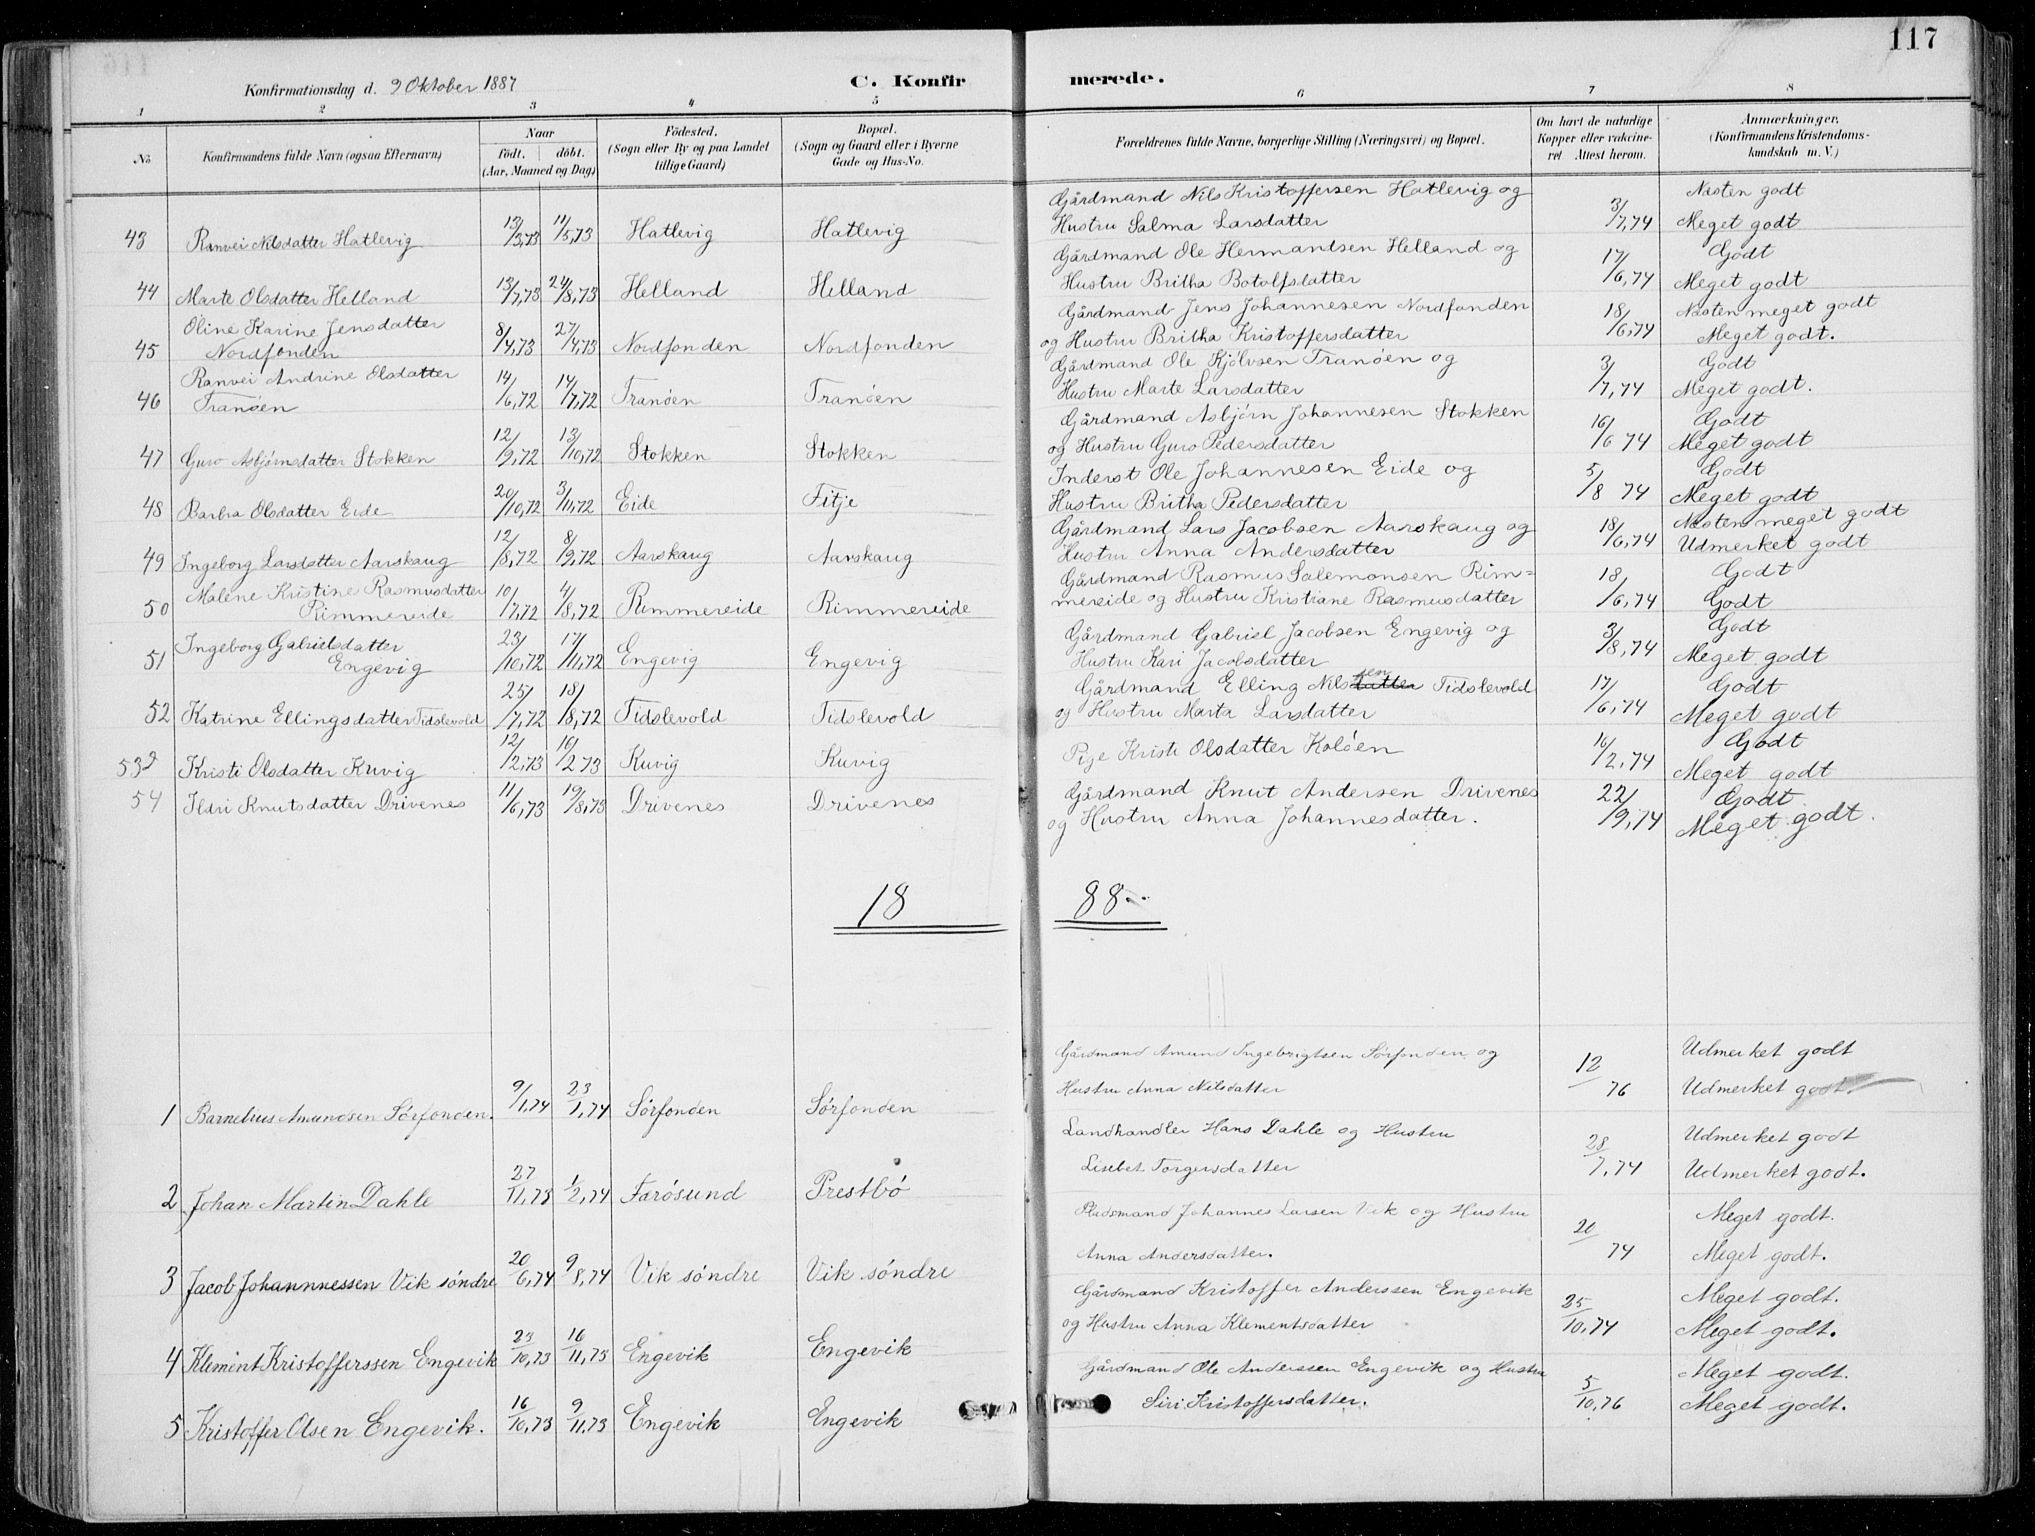 117
Konfirmationsdag d. 9 Oktober 1887
C. Konfir merede.
1 2 3 4 5 6 7 8
No
Konfirmandens fulde Navn (ogsaa Efternavn)
Naar
födt. döbt.
(Aar, Maaned og Dag)
Födested.
(Sogn eller By og paa Landet
tillige Gaard)
Bopæl.
(Sogn og Gaard eller i Byerne
Gade og Hus-No.
Forældrenes fulde Navne, borgerlige Stilling (Næringsvei) og Bopæl.
Om havt de naturlige
Kopper eller vakcine-
ret Attest herom.
Anmærkninger,
(Konfirmandens Kristendoms-
kundskab m. V.)
Gårdmand Nils Kristoffersen Hatlevig og Næsten godt
43 Ranvei Nilsdatter Hatlevig 13/3,73 11/5,73 Hatlevig Hatlevig Hustru Salma Larsdatter 3/7,74 Meget godt
Gårdmand Ole Hermandsen Helland og Godt
44 Marte Olsdatter Helland 13/7,73 24/8,73 Helland Helland Hustru Britha Botolfsdatter 17/6,74 Meget godt
Oline Karine Jensdatter Gårdmand Jens Johannesen Nordfonden Næsten meget godt
45 Nordfonden 8/4,73 27/4,73 Nordfonden Nordfonden og Hustru Britha Kristoffersdatter 18/6,74 Meget godt.
Ranvei Andrine Olsdatter Gårdmand Ole Kjölvsen Tranöen og Godt
46 Tranöen 14/6,72 14/7,72 Tranöen Tranöen Hustru Marte Larsdatter 3/7,74 Meget godt.
Gårdmand Asbjörn Johannesen Stokken Godt
47 Guro Asbjörnsdatter Stokken 12/9,72 13/10,72 Stokken Stokken og Hustru Guro Pedersdatter 16/6 74 Meget godt
Inderst Ole Johannesen Eide og Godt
48 Barbra Olsdatter Eide 20/10,72 3/11,72 Eide Fitje Hustru Britha Pedersdatter 5/8 74 Meget godt
Gårdmand Lars Jacobsen Aarskaug og Næsten meget godt
49 Ingeborg Larsdatter Aarskaug 12/8,72 8/9,72 Aarskaug Aarskaug Hustru Anna Andersdatter 18/6,74 Udmerket godt
Malene Kristine Rasmusdatter Gårdmand Rasmus Salemonsen Rim= Godt
50 Rimmereide 10/7,72 4/8,72 Rimmereide Rimmereide mereide og Hustru Kristiane Rasmusdatter 18/6,74 Godt
Ingeborg Gabrielsdatter Gårdmand Gabriel Jacobsen Engevig og Godt
51 Engevig 23/10,72 17/11,72 Engevig Engevig Hustru Kari Jacobsdatter 3/8,74 Meget godt
Gårdmand Elling Nilsdatter sen Tidslevold Godt
52 Katrine Ellingsdatter Tidslevold 25/7,72 18/8,72 Tidslevold Tidslevold og Hustru Marta Larsdatter 17/6,74 Meget godt
Pige Kristi Olsdatter Kolöen Godt
53 Kristi Olsdatter Kuvig 12/2,73 16/2 73 Kuvig Kuvig 16/2,74 Meget godt
Gårdmand Knut Andersen Drivenes Godt
54 Ildri Knutsdatter Drivenes 11/6,73 19/8,73 Drivenes Drivenes og Hustru Anna Johannesdatter. 22/9,74 Meget godt.
18 88
Gårdmand Amund Ingebrigtsen Sörfonden og Udmerket godt
1 Barnelius Amundsen Sörfonden. 9/1,74 23/1,74 Sörfonden Sörfonden Hustru Anna Nilsdatter 12/76 Udmerket godt.
Landhandler Hans Dahle og Hustru Udmerket godt
2 Johan Martin Dahle 27/11,73 1/2,74 Farösund Prestbö Lisebet Torgersdatter 28/7,74 Udmerket godt.
Pladsmand Johannes Larsen Vik og Hustru Meget godt.
3 Jacob Johannnessen Vik söndre 20/6,74 9/8,74 Vik söndre Vik söndre Anna Andersdatter. 20/74 Meget godt.
Gårdmand Kristoffer Anderssen Engevik Meget godt.
4 Klement Kristofferssen Engevik 23/10,73 16/11,73 Engevik Engevik og Hustru Anna Klementsdatter 25/10,74 Meget godt.
Gårdmand Ole Anderssen Engevik og Hustru Meget godt.
5 Kristoffer Olsen Engevik. 16/10,73 9/11,73 Engevik Engevik Siri Kristoffersdatter. 5/10,76 Meget godt.